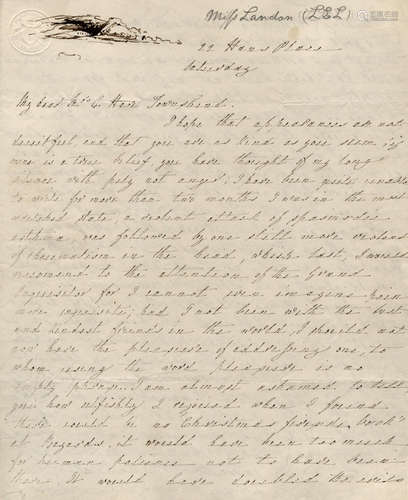 Miss Landon (L.E.L)
22 Hans Place
Saturday
My dear Mrs C. Hare Townshend.
I hope that appearances are not
deceitful, and that you are as kind as you seem, if
mine is a true belief you have thought of my long
silence with pity not anger. I have been quite unable
to write for more than two months I was in the most
wretched state, a violent attack of spasmodic
asthma was followed by one still more violent
of rheumatism in the head, which last, I would
recommend to the attention of the Grand
Inquisitor for I cannot even imagine pain
more exquisite; had I not been with the best
and kindest friends in the world, I should not
now have the pleasure of addressing one, to
whom using the word pleasure is no
empty phrase. I am almost ashamed to tell
you how selfishly I rejoiced when I found
there could be no Christmas fireside book
at Bogards, it would have been too much
for human patience not to have been
there, it would have doubled the evils